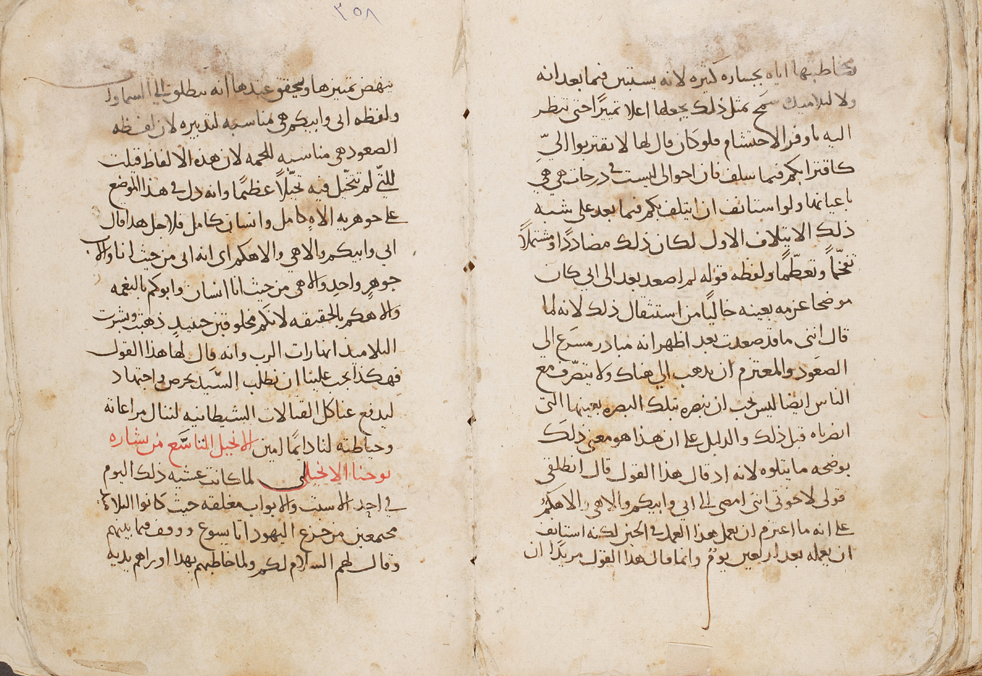 يخاطبها اياه بجساره كثيره لانه يستبين فيما بعد انه
ولا لتلاميذه سمح بمثل ذلك يجعلها اعلا تميزًا حتى تنظر
اليه باوفر الاحتشام فلو كان قال لها لا تقتربوا اليّ
كاقترابكم فيما سلف فان احوالي ليست في درجات هي هي
باعيانها ولو استانف ان ايتلف بكم فيما بعد على شبه
ذلك الايتلاف الاول لكان ذلك مضاددًا ومشتملاً
تفخّماً وتعظّماً ولفظه قوله لم اصعد بعد الى ابي كان
موضحا عزمه بعينه خالياً من استثقال ذلك لانه لما
قال انني ما قد صعدت بعد اظهر انه مبادر مسرع الى
الصعود والمعتزم ان يذهب الى هناك ولا يتصرّف مع
الناس ايضا ليس يجب ان ينصره بتلك البصره بعينها التي
ابصرناه قبل ذلك والدليل على ان هذا هو معنى ذلك
يوضحه ما يتلوه لانه اذ قال هذا القول قال انطلقي
قولي لاخوتي انني امضي الى ابي وابيكم والاهي والاهكم
على انه ما اعتزم ان يعمل هذا العمل في الحين لكنه استانف
ان يعمله بعد اربعين يومً وانما قال هذا القول مريدًا ان
٣٥٨
ينهض تميزها ويحقق عندها انه ينطلق الى السماوات
ولفظه ابي وابيكم هي مناسبه لتدبيره لان لفظه
الصعود هي مناسبه للحمه لان هذه الالفاظ قيلت
للتي لم تتخيّل فيه تخيّلاً عظيمًا وانه دل في هذا الموضع
على جوهريه الاه كامل وانسان كامل فلاجل هذا قال
ابي وابيكم والاهي والاهكم اى انه ابي من حيث انا والاب
جوهرٍ واحدٍ والاهي من حيث انا انسان وابوكم بالنعمه
والاهكم بالحقيقه لانكم مخلوقين جديدٍ ذهبت وبشرت
التلاميذ انها رات الرب وانه قال لها هذا القول
فهكذا يجب علينا ان نطلب السّيد بحرص واجتهاد
ليدفع عنا كل القتالات الشيطانيه لننال مراعاته
وحياطته لنا دايمًا امين الانجيل التاسع من بشاره
يوحنا الانجيلي لما كانت عشيه ذلك اليوم
في احد السبت والابواب مغلقه حيث كانوا التلاميذ
مجتمعين من جزع اليهود اتا يسوع ووقف فيما بينهم
وقال لهم السلام لكم ولما خاطبهم بهذا اوراهم يديه